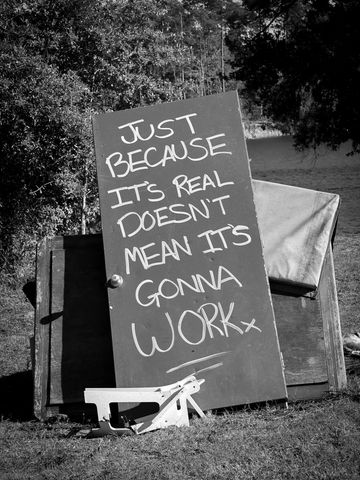 JUST
BECAUSE
IT'S REAL
DOESN'T
MEAN IT'S
GONNA
WORK x